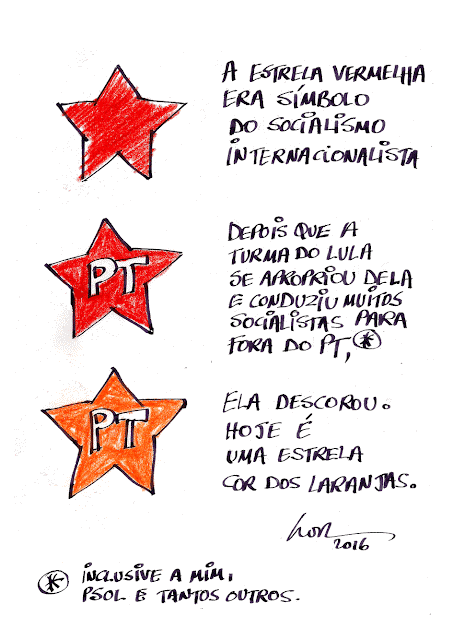 A ESTRELA VERMELHA
ERA SÍMBOLO
DO SOCIALISMO
INTERNACIONALISTA
PT
DEPOIS QUE A
TURMA DO LULA
SE APROPRIOU DELA
E CONDUZIU MUITOS
SOCIALISTAS PARA
FORA DO PT, *
PT
ELA DESCOROU.
HOJE É
UMA ESTRELA
COR DOS LARANJAS.
2016
* INCLUSIVE A MIM,
PSOL E TANTOS OUTROS.